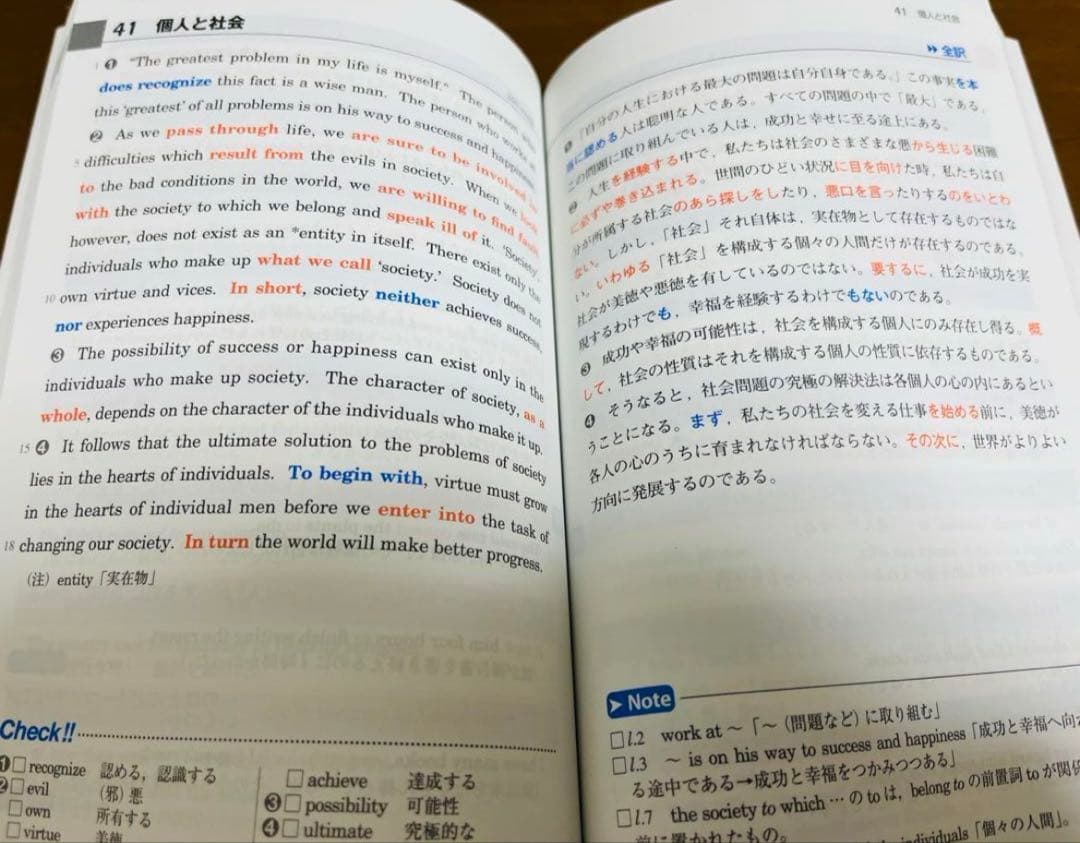 41 個人と社会
1 ❶ "The greatest problem in my life is myself." The person who
does recognize this fact is a wise man. The person who works at
this 'greatest' of all problems is on his way to success and happiness.
❷ As we pass through life, we are sure to be involved in
5 difficulties which result from the evils in society. When we
to the bad conditions in the world, we are willing to find fault
with the society to which we belong and speak ill of it. 'Society',
however, does not exist as an *entity in itself. There exist only the
individuals who make up what we call 'society.' Society does not
10 own virtue and vices. In short, society neither achieves success,
nor experiences happiness.
❸ The possibility of success or happiness can exist only in the
individuals who make up society. The character of society, as a
whole, depends on the character of the individuals who make it up.
15 ❹ It follows that the ultimate solution to the problems of society
lies in the hearts of individuals. To begin with, virtue must grow
in the hearts of individual men before we enter into the task of
18 changing our society. In turn the world will make better progress.
(注) entity「実在物」
Check!!
❶□ recognize 認める，認識する
❷□ evil (邪)悪
□ own 所有する
□ virtue 美徳
□ achieve 達成する
❸□ possibility 可能性
❹□ ultimate 究極的な
41 個人と社会
全訳
❶ 「自分の人生における最大の問題は自分自身である。」この事実を本
当に認める人は聡明な人である。すべての問題の中で「最大」である，
この問題に取り組んでいる人は，成功と幸せに至る途上にある。
❷ 人生を経験する中で，私たちは社会のさまざまな悪から生じる困難
に必ずや巻き込まれる。世間のひどい状況に目を向けた時，私たちは自
分が所属する社会のあら探しをしたり，悪口を言ったりするのをいとわ
ない。しかし，「社会」それ自体は，実在物として存在するものではな
い。いわゆる「社会」を構成する個々の人間だけが存在するのである。
社会が美徳や悪徳を有しているのではない。要するに，社会が成功を実
現するわけでも，幸福を経験するわけでもないのである。
❸ 成功や幸福の可能性は，社会を構成する個人にのみ存在し得る。概
して，社会の性質はそれを構成する個人の性質に依存するものである。
❹ そうなると，社会問題の究極の解決法は各個人の心の内にあるとい
うことになる。まず，私たちの社会を変える仕事を始める前に，美徳が
各人の心のうちに育まれなければならない。その次に，世界がよりよい
方向に発展するのである。
Note
□l.2 work at ～「～(問題など)に取り組む」
□l.3 ～ is on his way to success and happiness「成功と幸福へ向か
る途中である→成功と幸福をつかみつつある」
□l.7 the society to which … の to は，belong to の前置詞 to が関係
前に置かれたもの。
individuals「個々の人間」。